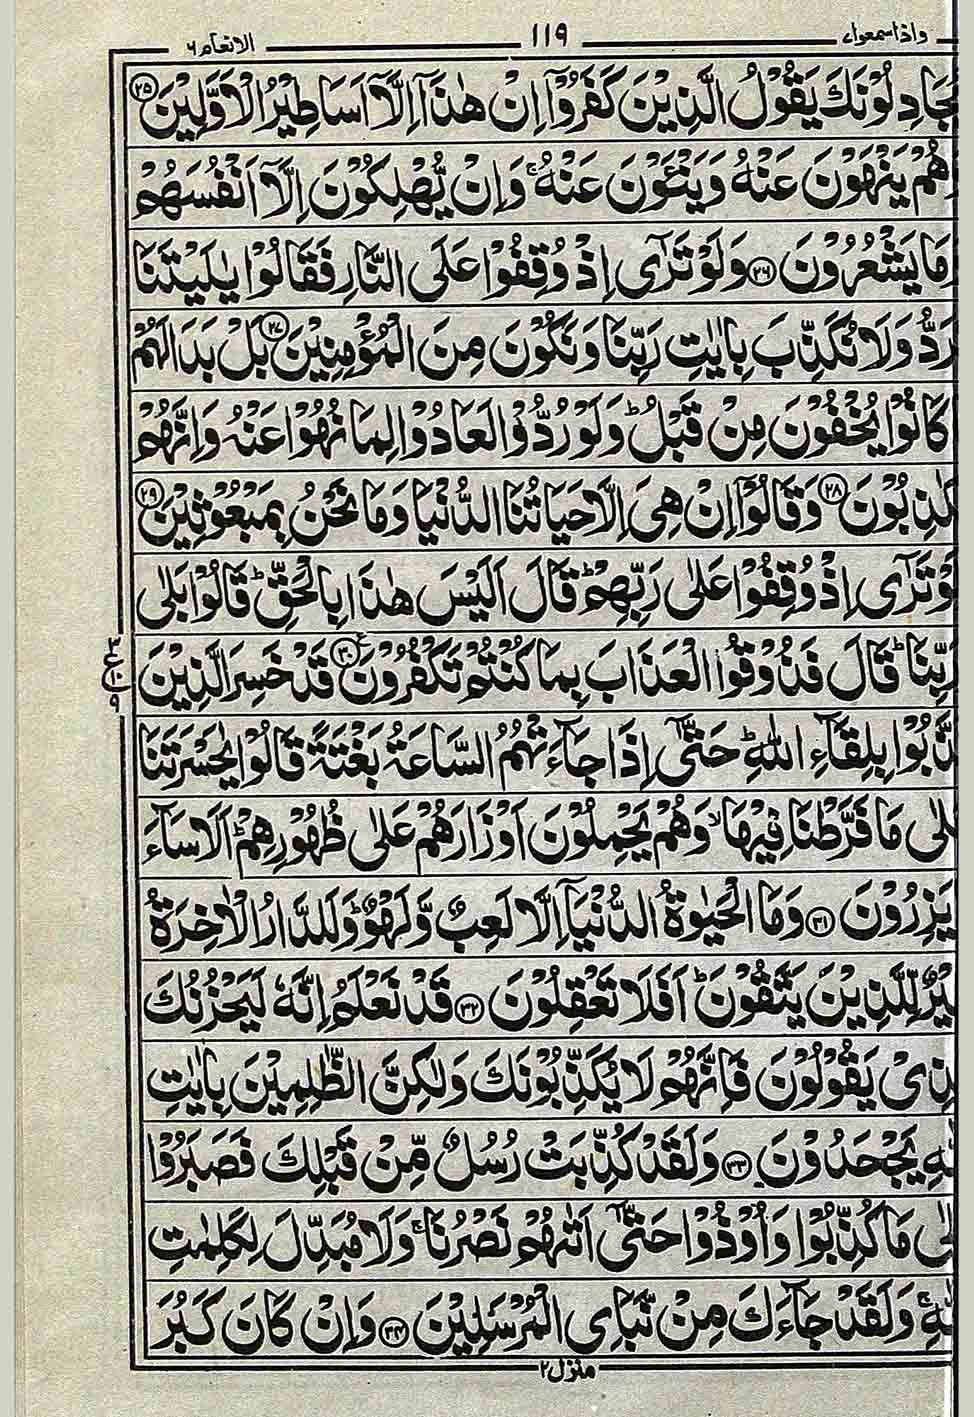 واذاسمعوا ۷ ۱۱۹ الانعام ۶
يُجَادِلُوْنَكَ يَقُوْلُ الَّذِيْنَ كَفَرُوْۤا اِنْ هٰذَاۤ اِلَّاۤ اَسَاطِيْرُ الْاَوَّلِيْنَ ۲۵
هُمْ يَنْهَوْنَ عَنْهُ وَيَنْـَٔوْنَ عَنْهُ ۚ وَاِنْ يُّهْلِكُوْنَ اِلَّاۤ اَنْفُسَهُمْ
مَا يَشْعُرُوْنَ ۲۶ وَلَوْ تَرٰۤى اِذْ وُقِفُوْا عَلَى النَّارِ فَقَالُوْا يٰلَيْتَنَا
رَدُّ وَلَا نُكَذِّبَ بِاٰيٰتِ رَبِّنَا وَنَكُوْنَ مِنَ الْمُؤْمِنِيْنَ ۲۷ بَلْ بَدَا لَهُمْ
كَانُوْا يُخْفُوْنَ مِنْ قَبْلُ ؕ وَلَوْ رُدُّوْا لَعَادُوْا لِمَا نُهُوْا عَنْهُ وَاِنَّهُمْ
كٰذِبُوْنَ ۲۸ وَقَالُوْۤا اِنْ هِىَ اِلَّا حَيَاتُنَا الدُّنْيَا وَمَا نَحْنُ بِمَبْعُوْثِيْنَ ۲۹
وْ تَرٰۤى اِذْ وُقِفُوْا عَلٰى رَبِّهِمْ ؕ قَالَ اَلَيْسَ هٰذَا بِالْحَقِّ ؕ قَالُوْا بَلٰى
رَبِّنَا ؕ قَالَ فَذُوْقُوا الْعَذَابَ بِمَا كُنْتُمْ تَكْفُرُوْنَ ۳۰ قَدْ خَسِرَ الَّذِيْنَ
ذَّبُوْا بِلِقَآءِ اللّٰهِ ؕ حَتّٰۤى اِذَا جَآءَتْهُمُ السَّاعَةُ بَغْتَةً قَالُوْا يٰحَسْرَتَنَا
لٰى مَا فَرَّطْنَا فِيْهَا ۙ وَهُمْ يَحْمِلُوْنَ اَوْزَارَهُمْ عَلٰى ظُهُوْرِهِمْ ؕ اَلَا سَآءَ
يَزِرُوْنَ ۳۱ وَمَا الْحَيٰوةُ الدُّنْيَاۤ اِلَّا لَعِبٌ وَّلَهْوٌ ؕ وَلَلدَّارُ الْاٰخِرَةُ
يْرٌ لِّلَّذِيْنَ يَتَّقُوْنَ ؕ اَفَلَا تَعْقِلُوْنَ ۳۲ قَدْ نَعْلَمُ اِنَّهٗ لَيَحْزُنُكَ
لَّذِىْ يَقُوْلُوْنَ فَاِنَّهُمْ لَا يُكَذِّبُوْنَكَ وَلٰكِنَّ الظّٰلِمِيْنَ بِاٰيٰتِ
لّٰهِ يَجْحَدُوْنَ ۳۳ وَلَقَدْ كُذِّبَتْ رُسُلٌ مِّنْ قَبْلِكَ فَصَبَرُوْا
لٰى مَا كُذِّبُوْا وَاُوْذُوْا حَتّٰۤى اَتٰىهُمْ نَصْرُنَا ۚ وَلَا مُبَدِّلَ لِكَلِمٰتِ
لّٰهِ ۚ وَلَقَدْ جَآءَكَ مِنْ نَّبَاِى الْمُرْسَلِيْنَ ۳۴ وَاِنْ كَانَ كَبُرَ
۳
ع
۱۰
۹
منزل ۲